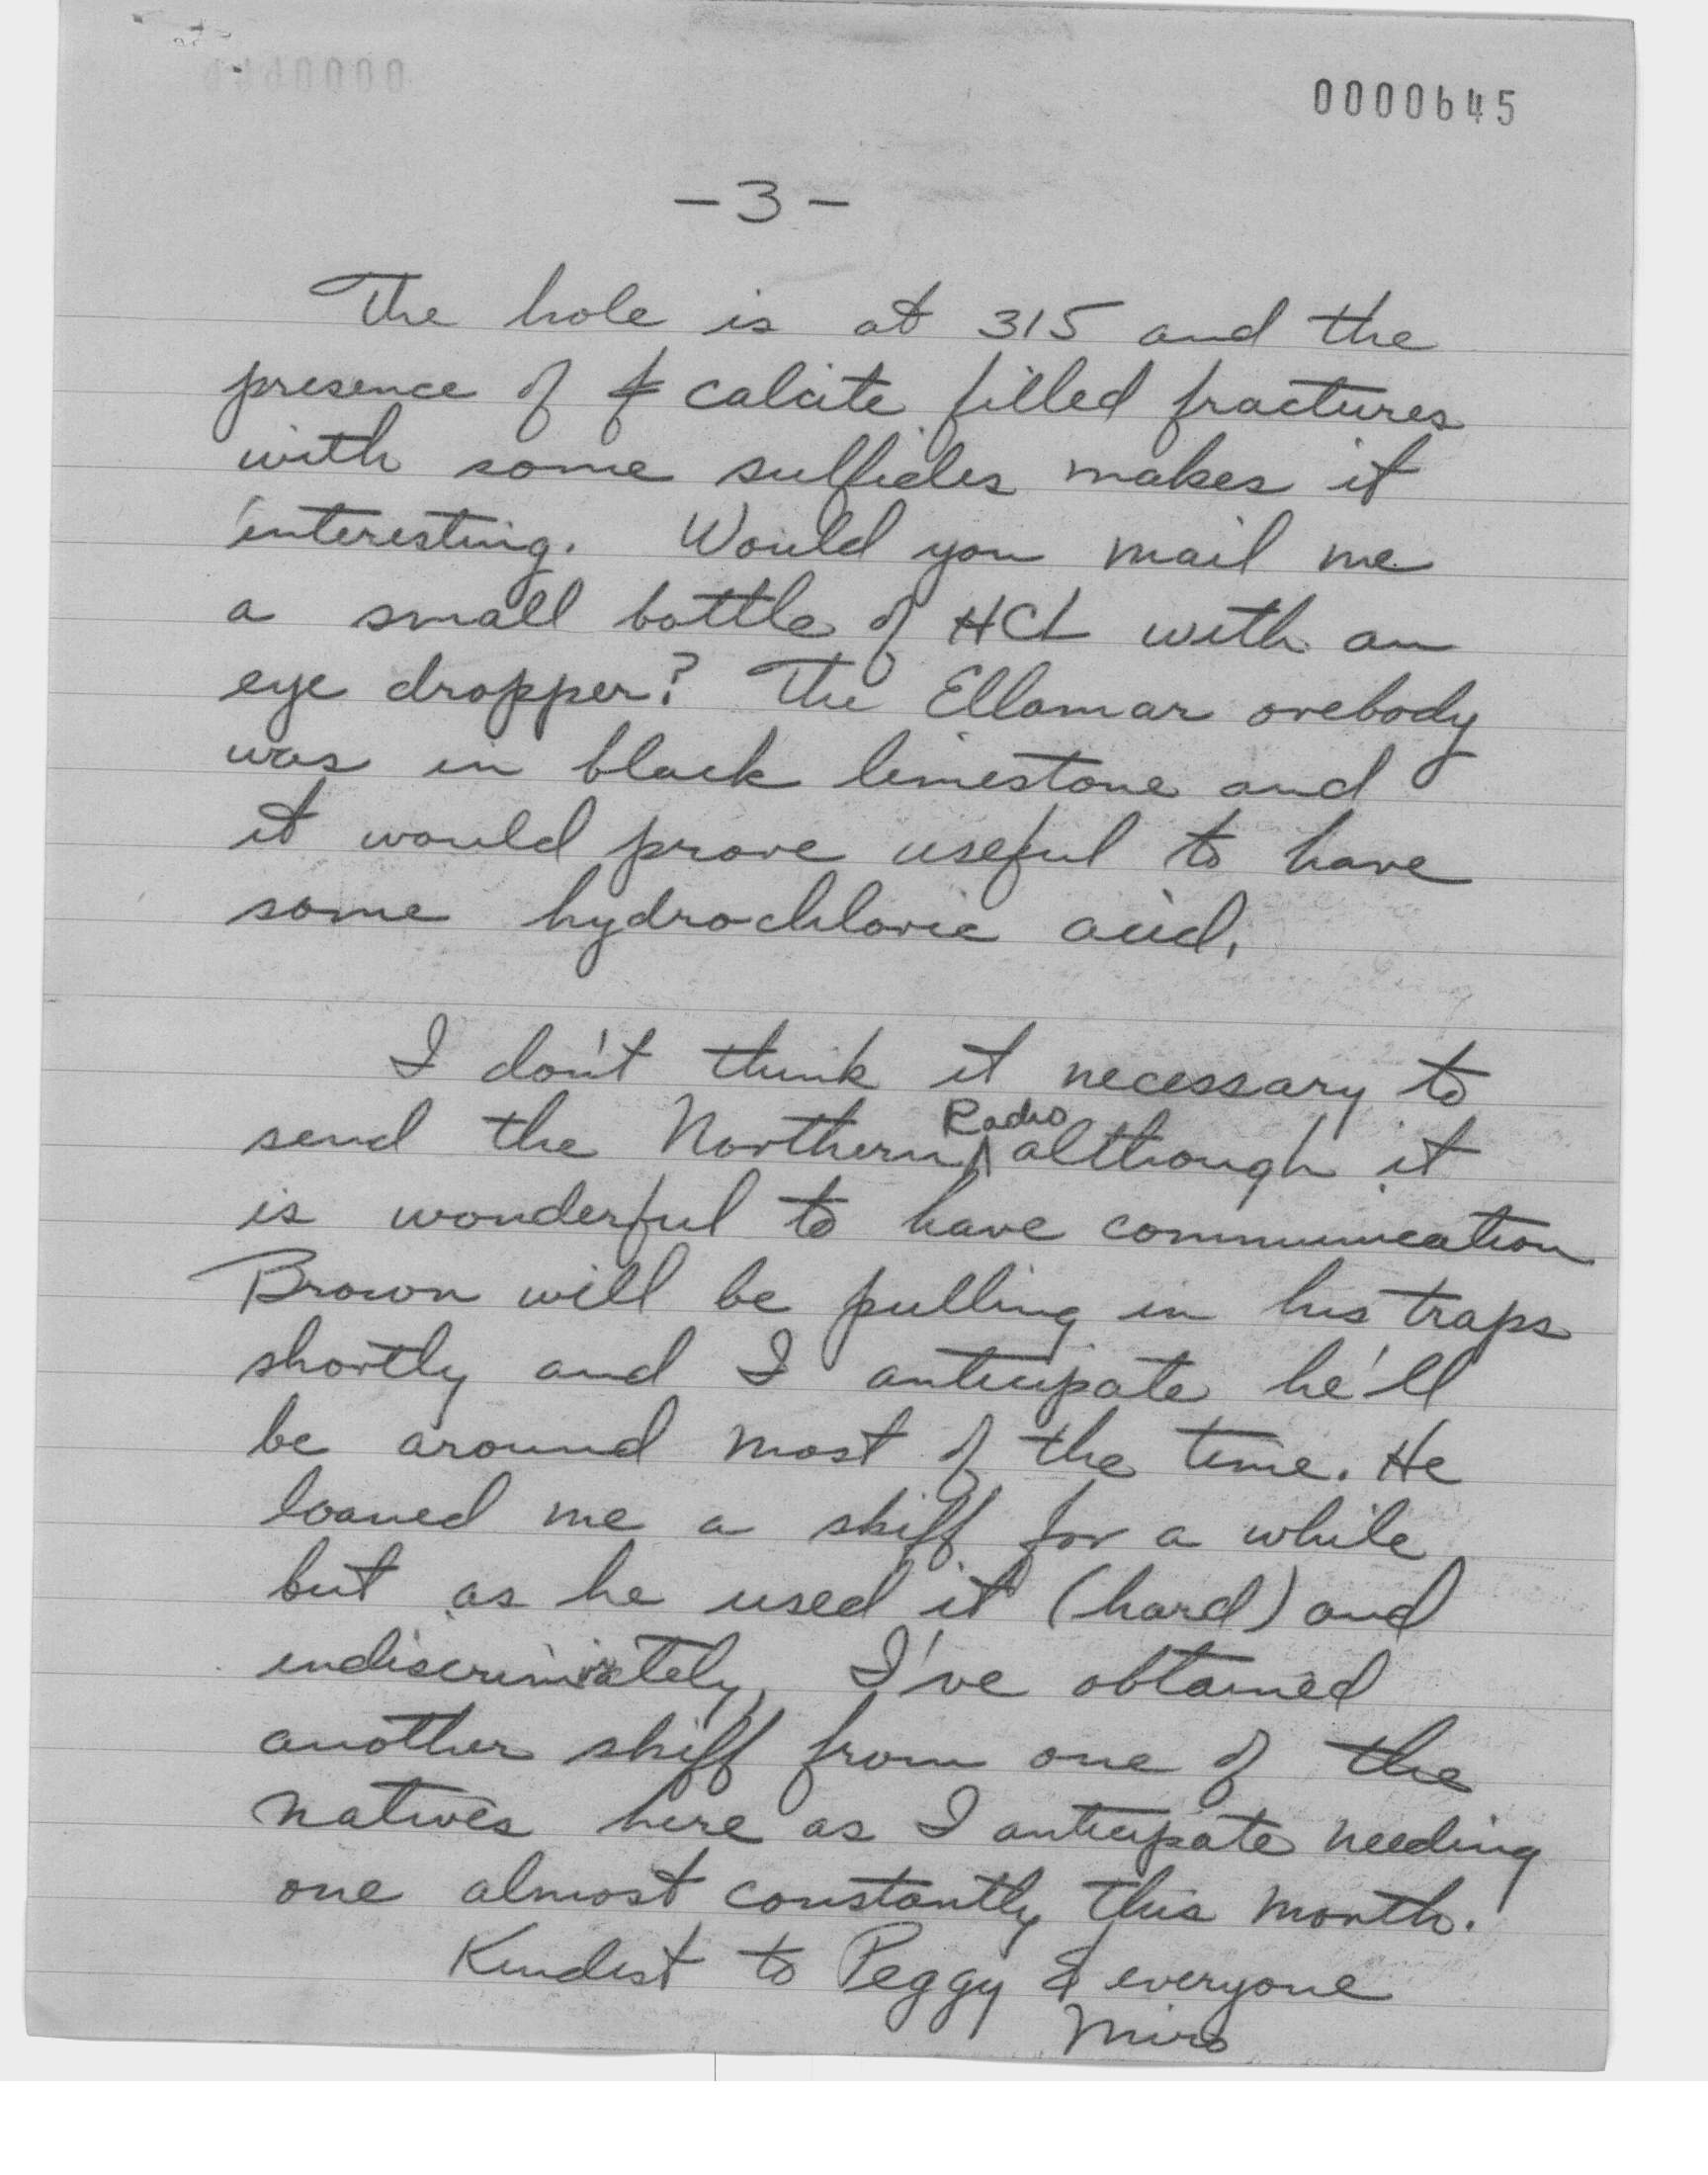 0000645
-3-
The hole is at 315 and the
presence of f calcite filled fractures
with some sulfides makes it
interesting. Would you mail me
a small bottle of HCL with an
eye dropper? The Ellamar orebody
was in black limestone and
it would prove useful to have
some hydrochloric acid.
I don't think it necessary to
send the Northern Radio although it
is wonderful to have communication
Brown will be pulling in his traps
shortly and I anticipate he'll
be around most of the time. He
loaned me a skiff for a while
but as he used it (hard) and
indiscriminately, I've obtained
another skiff from one of the
natives here as I anticipate needing
one almost constantly this month.
Kindest to Peggy & everyone
Miro